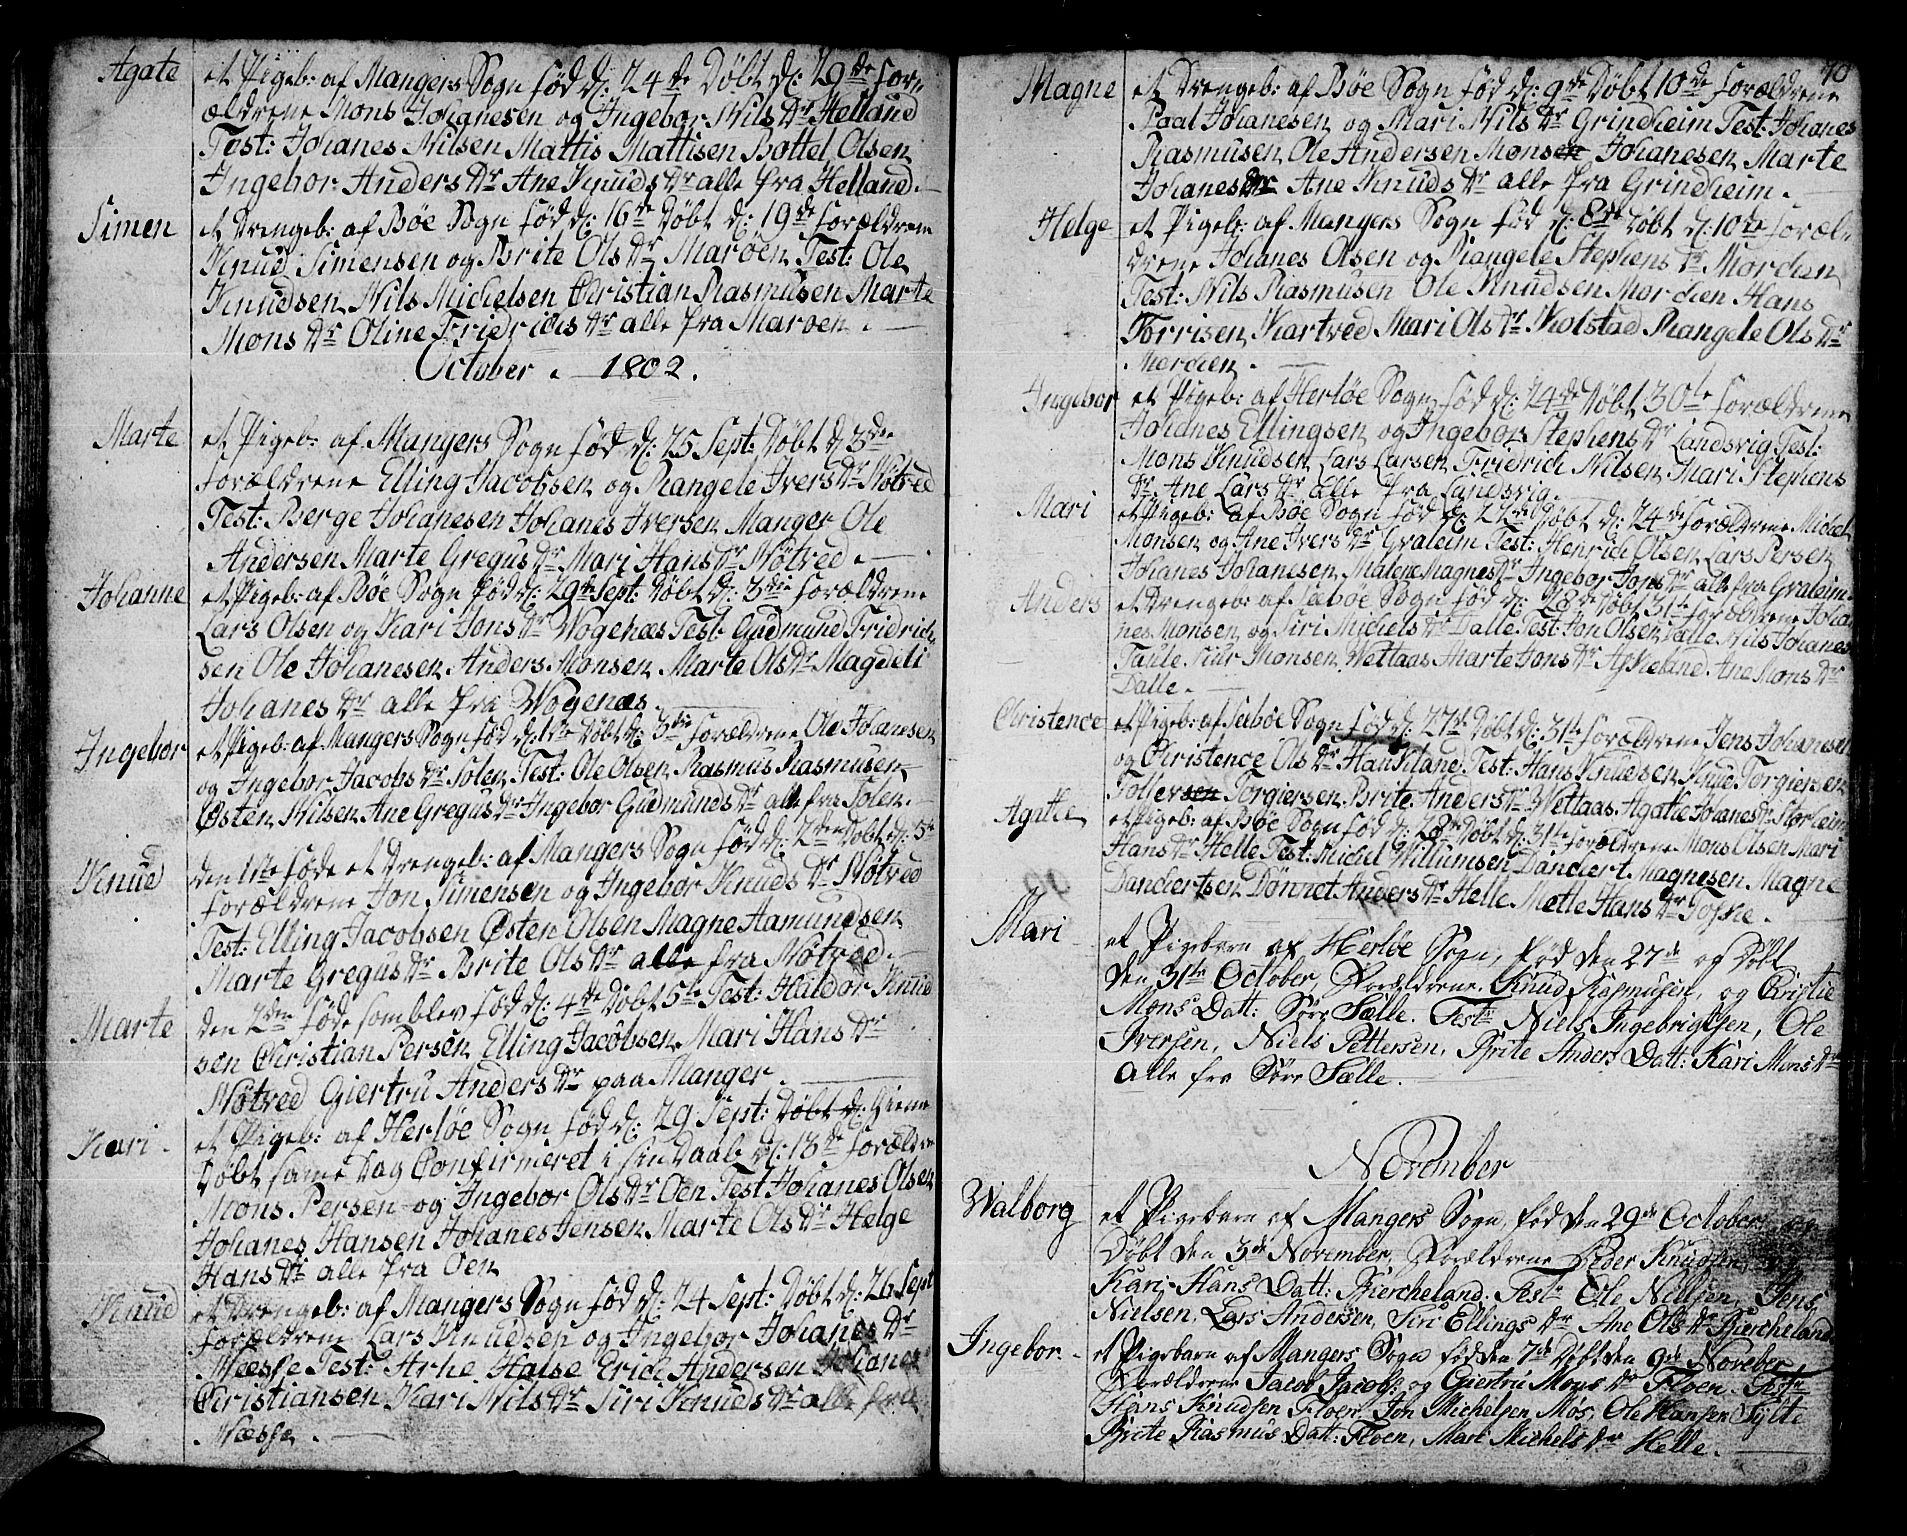 Agate et Pigeb: af Mangers Sogn fød d: 24de Døbt d: 29de For-
ældrene Mons Johanesen og Ingebor Nils Dr Helland
Test: Johanes Nilsen Mattis Mattisen Bottel Olsen
Ingebor Anders Dr Ane Knuds Dr alle fra Helland.
Simen et Drengeb: af Bøe Sogn fød d: 16de Døbt d: 19de Forældrene
Knud Simensen og Brite Ols Dr Marøen Test: Ole
Knudsen Nils Michelsen Christian Rasmusen Marte
Mons Dr Oline Fridrichs Dr alle fra Marøen.
October. 1802.
Marte et Pigeb: af Mangers Sogn fød d: 25 Sept: Døbt d 3die
Forældrene Elling Jacobsen og Rangele Ivers Dr Nøtved
Test: Berge Johanesen Johanes Iversen Manger Ole
Andersen Marte Gregus Dr Mari Hans Dr Nøtved.
Johanne et Pigeb: af Bøe Sogn fød d: 29de Sept: Døbt d: 3die Forældrene
Lars Olsen og Kari Jons Dr Wogenæs Test: Gudmund Fridrich
sen Ole Johanesen Anders Monsen Marte Ols Dr Magdeli
Johanes Dr alle fra Wogenæs
Ingebor et Pigeb: af Mangers Sogn fød d: 1te Døbt d: 3die Forældrene Ole Johanesen
og Ingebor Jacobs Dr Solen Test: Ole Olsen Rasmus Rasmusen
Østen Nilsen Ane Gregus Dr Ingebor Gudmunds Dr alle fra Solen.
Knud den 1ste føde et Drengeb: af Mangers Sogn fød d: 2den Døbt d: 5te
Forældrene Jon Simensen og Ingebor Knuds Dr Nøtved
Test: Elling Jacobsen Østen Olsen Magne Hamundsen
Marte Gregus Dr Brite Ols Dr alle fra Nøtved.
Marte den 2den føde som blev fød d: 4de Døbt 5te Test: Haldor Knud
sen Christian Persen Elling Jacobsen Mari Hans Dr
Nøtved Giertru Anders Dr paa Manger.
Kari. et Pigeb: af Herløe Sogn fød d: 29 Sept: Døbt d: Hieme
Døbt same Dag Confirmeret i sin Daab d: 13de Forældre
Mons Persen og Ingebor Ols Dr Oen Test Johanes Olsen
Johanes Hansen Johanes Jensen Marte Ols Dr Helge
Hans Dr alle fra Oen
Knud et Drengeb: af Mangers Sogn fød d: 24 Sept: Døbt d: 26 Sept
Forældrene Lars Knudsen og Ingebor Johanes Dr
Næsse Test: Arne Halse Erich Andersen Johanes
Christiansen Kari Nils Dr Siri Knuds Dr alle fra
Næsse.
70
Magne et Drengeb: af Bøe Sogn fød d: 9de Døbt 10de Forældrene
Paal Johanesen og Mari Nils Dr Grindheim Test: Johanes
Rasmusen Ole Andersen Mons Johanesen Marte
Johanes Dr Ane Knuds Dr alle fra Grindheim.
Helge et Pigeb: af Mangers Sogn fød d: 8de Døbt d: 10de Foræl-
drene Johanes Olsen og Rangele Stephens Dr Mørchen
Test: Nils Rasmusen Ole Knudsen Mørchen Hans
Torrisen Kartved Mari Ols Dr Kolstad Rangele Ols Dr
Mørchen.
Ingebor et Pigeb: af Herløe Sogn fød d: 24de Døbt 30te Forældrene
Johanes Ellingsen og Ingebor Stephens Dr Landsvig Test:
Mons Knudsen Lars Larsen Fridrich Nilsen Mari Stephens
Dr Ane Lars Dr alle fra Landsvig.
Mari et Pigeb: af Bøe Sogn fød d: 22de Døbt d: 24de Forældrene Michel
Monsen og Ane Ivers Dr Gvaleim Test: Henrich Olsen Lars Persen
Johanes Johanesen Malene Magnes Dr Ingebor Jons Dr alle fra Gvaleim.
Anders et Drengeb: af Sæbøe Sogn fød d: 28de Døbt 31te Forældrene Johan
nes Monsen og Siri Michels Dr Dalle Test: Jon Olsen Dalle Nils Johanes
Tahle Siur Monsen Wettaas Marte Jons Dr Askeland Ane Mons Dr
Dalle.
Christence et Pigeb: af Sæbøe Sogn fød d: 27de Døbt d: 31te Forældrene Jens Johanesen
og Christence Ols Dr Haukland Test: Hans Knudsen Knud Torgiersen
Tollersen Torgiersen Brite Anders Dr Wettaas Agathe Johanes Dr Storheim
Agathe et Pigeb: af Bøe Sogn fød d: 28de Døbt d: 31te Forældrene Mons Olsen Mari
Hans Dr Helle Test: Michel Willumsen Danchert Magnesen Magne
Danchertsen Dønnet Anders Dr Helle Mette Hans Dr Toske.
Mari et Pigebarn af Herløe Sogn, fød den 27de og Døbt
den 31te October, Forældrene. Knud Rasmusen, og Christie
Mons Datt: Søre Sælle. Test: Niels Ingebrigtsen, Ole
Iversen, Niels Pettersen, Brite Anders Datt: Kari Mons Dr
alle fra Søre Sælle.
November
Walborg et Pigebarn af Mangers Sogn, fød den 29de October,
Døbt den 3de November, Forældrene Peder Knudsen,
Kari Hans Datt: Biercheland. Test: Ole Nielsen, Jens
Nielsen, Lars Andersen, Siri Ellings Dr Ane Ols Dr Biercheland.
Ingebor. et Pigebarn af Mangers Sogn fød den 7de Døbt den 9de Noveber
Forældrene Jacob Jacobs: og Giertru Mons Dr Floen. Test:
Hans Knudsen Floen, Jon Michelsen Mos, Ole Hansen Sylte
Brite Rasmus Datt: Floen, Mari Michels Dr Helle.